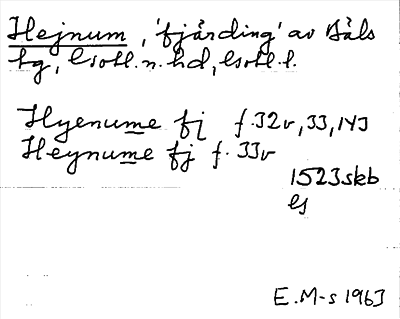 Hejnum, 'fjärding' av Bäls
tg, Gotl. n. hd, Gotl. l.
Hyenume fj f. 32v, 33, 143
Heynume fj f. 33v
1523 skb
es
E. M-s 1963